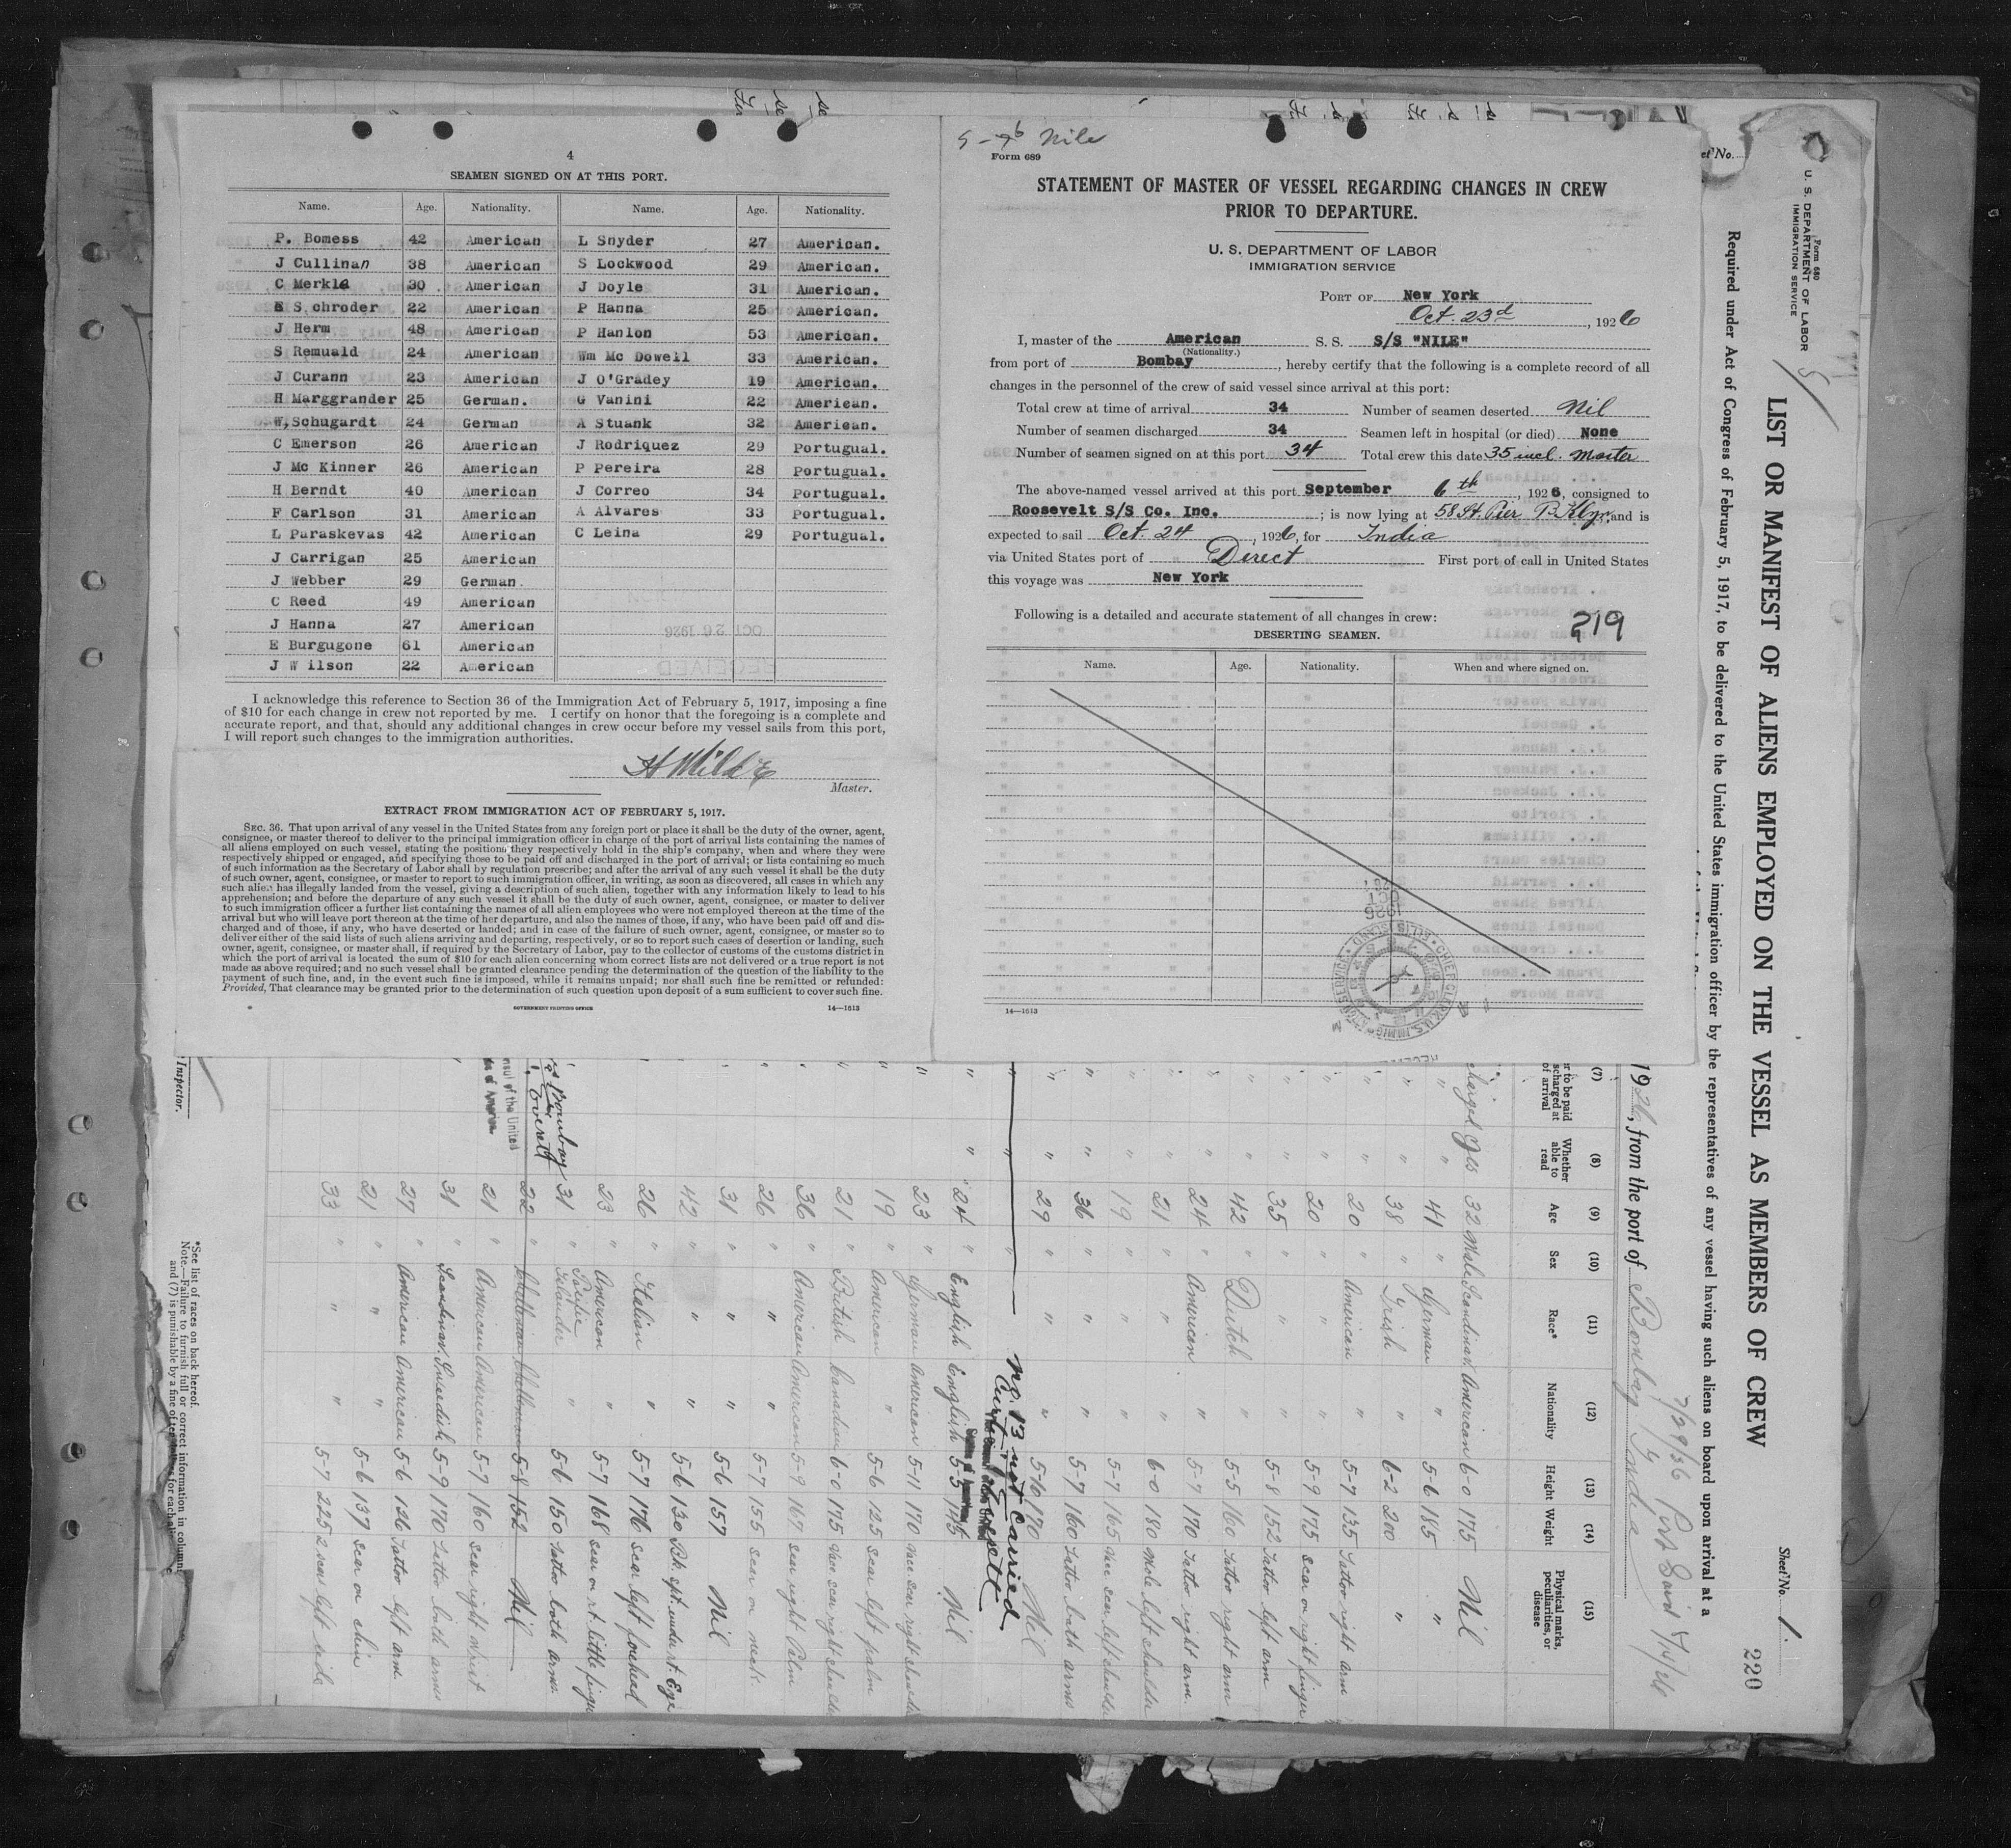 4
SEAMEN SIGNED ON AT THIS PORT.
Name. Age. Nationality. Name. Age. Nationality.
P. Bomess 42 American L Snyder 27 American.
J Cullinan 38 American S Lockwood 29 American.
C Merkle 30 American J Doyle 31 American.
E S chroder 22 American P Hanna 25 American.
J Herm 48 American P Hanlon 53 American.
S Remuald 24 American Wm Mc Dowell 33 American.
J Curann 23 American J O'Gradey 19 American.
H Marggrander 25 German. G Vanini 22 American.
W,Schugardt 24 German A Stuank 32 American.
C Emerson 26 American J Rodriquez 29 Portugual.
J Mc Kinner 26 American P Pereira 28 Portugual.
H Berndt 40 American J Correo 34 Portugual.
F Carlson 31 American A Alvares 33 Portugual.
L Paraskevas 42 American C Leina 29 Portugual.
J Carrigan 25 American
J Webber 29 German.
C Reed 49 American
J Hanna 27 American
E Burgugone 61 American
J W ilson 22 American
I acknowledge this reference to Section 36 of the Immigration Act of February 5, 1917, imposing a fine
of $10 for each change in crew not reported by me. I certify on honor that the foregoing is a complete and
accurate report, and that, should any additional changes in crew occur before my vessel sails from this port,
I will report such changes to the immigration authorities.
Master.
EXTRACT FROM IMMIGRATION ACT OF FEBRUARY 5, 1917.
SEC. 36. That upon arrival of any vessel in the United States from any foreign port or place it shall be the duty of the owner, agent,
consignee, or master thereof to deliver to the principal immigration officer in charge of the port of arrival lists containing the names of
all aliens employed on such vessel, stating the positions they respectively hold in the ship's company, when and where they were
respectively shipped or engaged, and specifying those to be paid off and discharged in the port of arrival; or lists containing so much
of such information as the Secretary of Labor shall by regulation prescribe; and after the arrival of any such vessel it shall be the duty
of such owner, agent, consignee, or master to report to such immigration officer, in writing, as soon as discovered, all cases in which any
such alien has illegally landed from the vessel, giving a description of such alien, together with any information likely to lead to his
apprehension; and before the departure of any such vessel it shall be the duty of such owner, agent, consignee, or master to deliver
to such immigration officer a further list containing the names of all alien employees who were not employed thereon at the time of the
arrival but who will leave port thereon at the time of her departure, and also the names of those, if any, who have been paid off and dis-
charged and of those, if any, who have deserted or landed; and in case of the failure of such owner, agent, consignee, or master so to
deliver either of the said lists of such aliens arriving and departing, respectively, or so to report such cases of desertion or landing, such
owner, agent, consignee, or master shall, if required by the Secretary of Labor, pay to the collector of customs of the customs district in
which the port of arrival is located the sum of $10 for each alien concerning whom correct lists are not delivered or a true report is not
made as above required; and no such vessel shall be granted clearance pending the determination of the question of the liability to the
payment of such fine, and, in the event such fine is imposed, while it remains unpaid; nor shall such fine be remitted or refunded:
Provided, That clearance may be granted prior to the determination of such question upon deposit of a sum sufficient to cover such fine.
GOVERNMENT PRINTING OFFICE 14—1613
Nile
Form 689
STATEMENT OF MASTER OF VESSEL REGARDING CHANGES IN CREW
PRIOR TO DEPARTURE.
U. S. DEPARTMENT OF LABOR
IMMIGRATION SERVICE
PORT OF New York
Oct. 23d, 1926
I, master of the American S. S. S/S "NILE"
(Nationality.)
from port of Bombay, hereby certify that the following is a complete record of all
changes in the personnel of the crew of said vessel since arrival at this port:
Total crew at time of arrival 34 Number of seamen deserted Nil
Number of seamen discharged 34 Seamen left in hospital (or died) None
Number of seamen signed on at this port 34 Total crew this date 35 incl. Master
The above-named vessel arrived at this port September 6th, 1926, consigned to
Roosevelt S/S Co. Inc. ; is now lying at 58 St. Pier B'Klyn, and is
expected to sail Oct. 24, 1926, for India
via United States port of Direct First port of call in United States
this voyage was New York
Following is a detailed and accurate statement of all changes in crew:
219
DESERTING SEAMEN.
Name. Age. Nationality. When and where signed on.
14—1613
Sheet No. 1.
220
Form 680
U. S. DEPARTMENT OF LABOR
IMMIGRATION SERVICE
LIST OR MANIFEST OF ALIENS EMPLOYED ON THE VESSEL AS MEMBERS OF CREW
Required under Act of Congress of February 5, 1917, to be delivered to the United States immigration officer by the representatives of any vessel having such aliens on board upon arrival at a
1926, from the port of Bombay India
(7) (8) (9) (10) (11) (12) (13) (14) (15)
Whether able to read Age Sex Race* Nationality Height Weight Physical marks, peculiarities, or disease
yes 32 Male Scandinav American 6-0 175 Nil
" 41 " German " 5-6 185 "
" 38 " Irish " 6-2 200 "
" 20 " American 5-7 135 Tattoo right arm
" 20 " " " 5-9 175 scar on right finger
" 35 " " " 5-8 152 Tattoo left arm
" 42 " Dutch " 5-5 160 Tattoo right arm
" 24 " American " 5-7 170 Tattoo right arm
" 21 " " " 6-0 180 Mole left shoulder
" 19 " " " 5-7 165
" 36 " " " 5-7 160 Tattoo both arms
" 29 " " " 5-10 170 Nil
No. 13 not carried
" 24 " English English 5-5 145 Nil
23 " German American 5-11 170
19 " American " 5-6 125 scar left palm
21 " British Canadian 6-0 175
36 " American American 5-9 167 scar right Palm
26 " " " 5-7 155 scar on neck
31 " " " 5-6 157 Nil
42 " " " 5-6 130
26 " Italian " 5-7 176 scar left forehead
23 " American " 5-7 168 scar on rt. little finger
31 " Pacific Islander " 5-6 150 Tattoo both arms
22 " 5-8 152 Nil
21 " American American 5-7 160 scar right wrist
31 " Scandinav. Swedish 5-9 170 Tattoo both arms
27 " American American 5-6 126 Tattoo left arm
21 " " " 5-6 137 scar on chin
33 " " " 5-7 225
Inspector.
*See list of races on back hereof.
Note.—Failure to furnish full or correct information in column